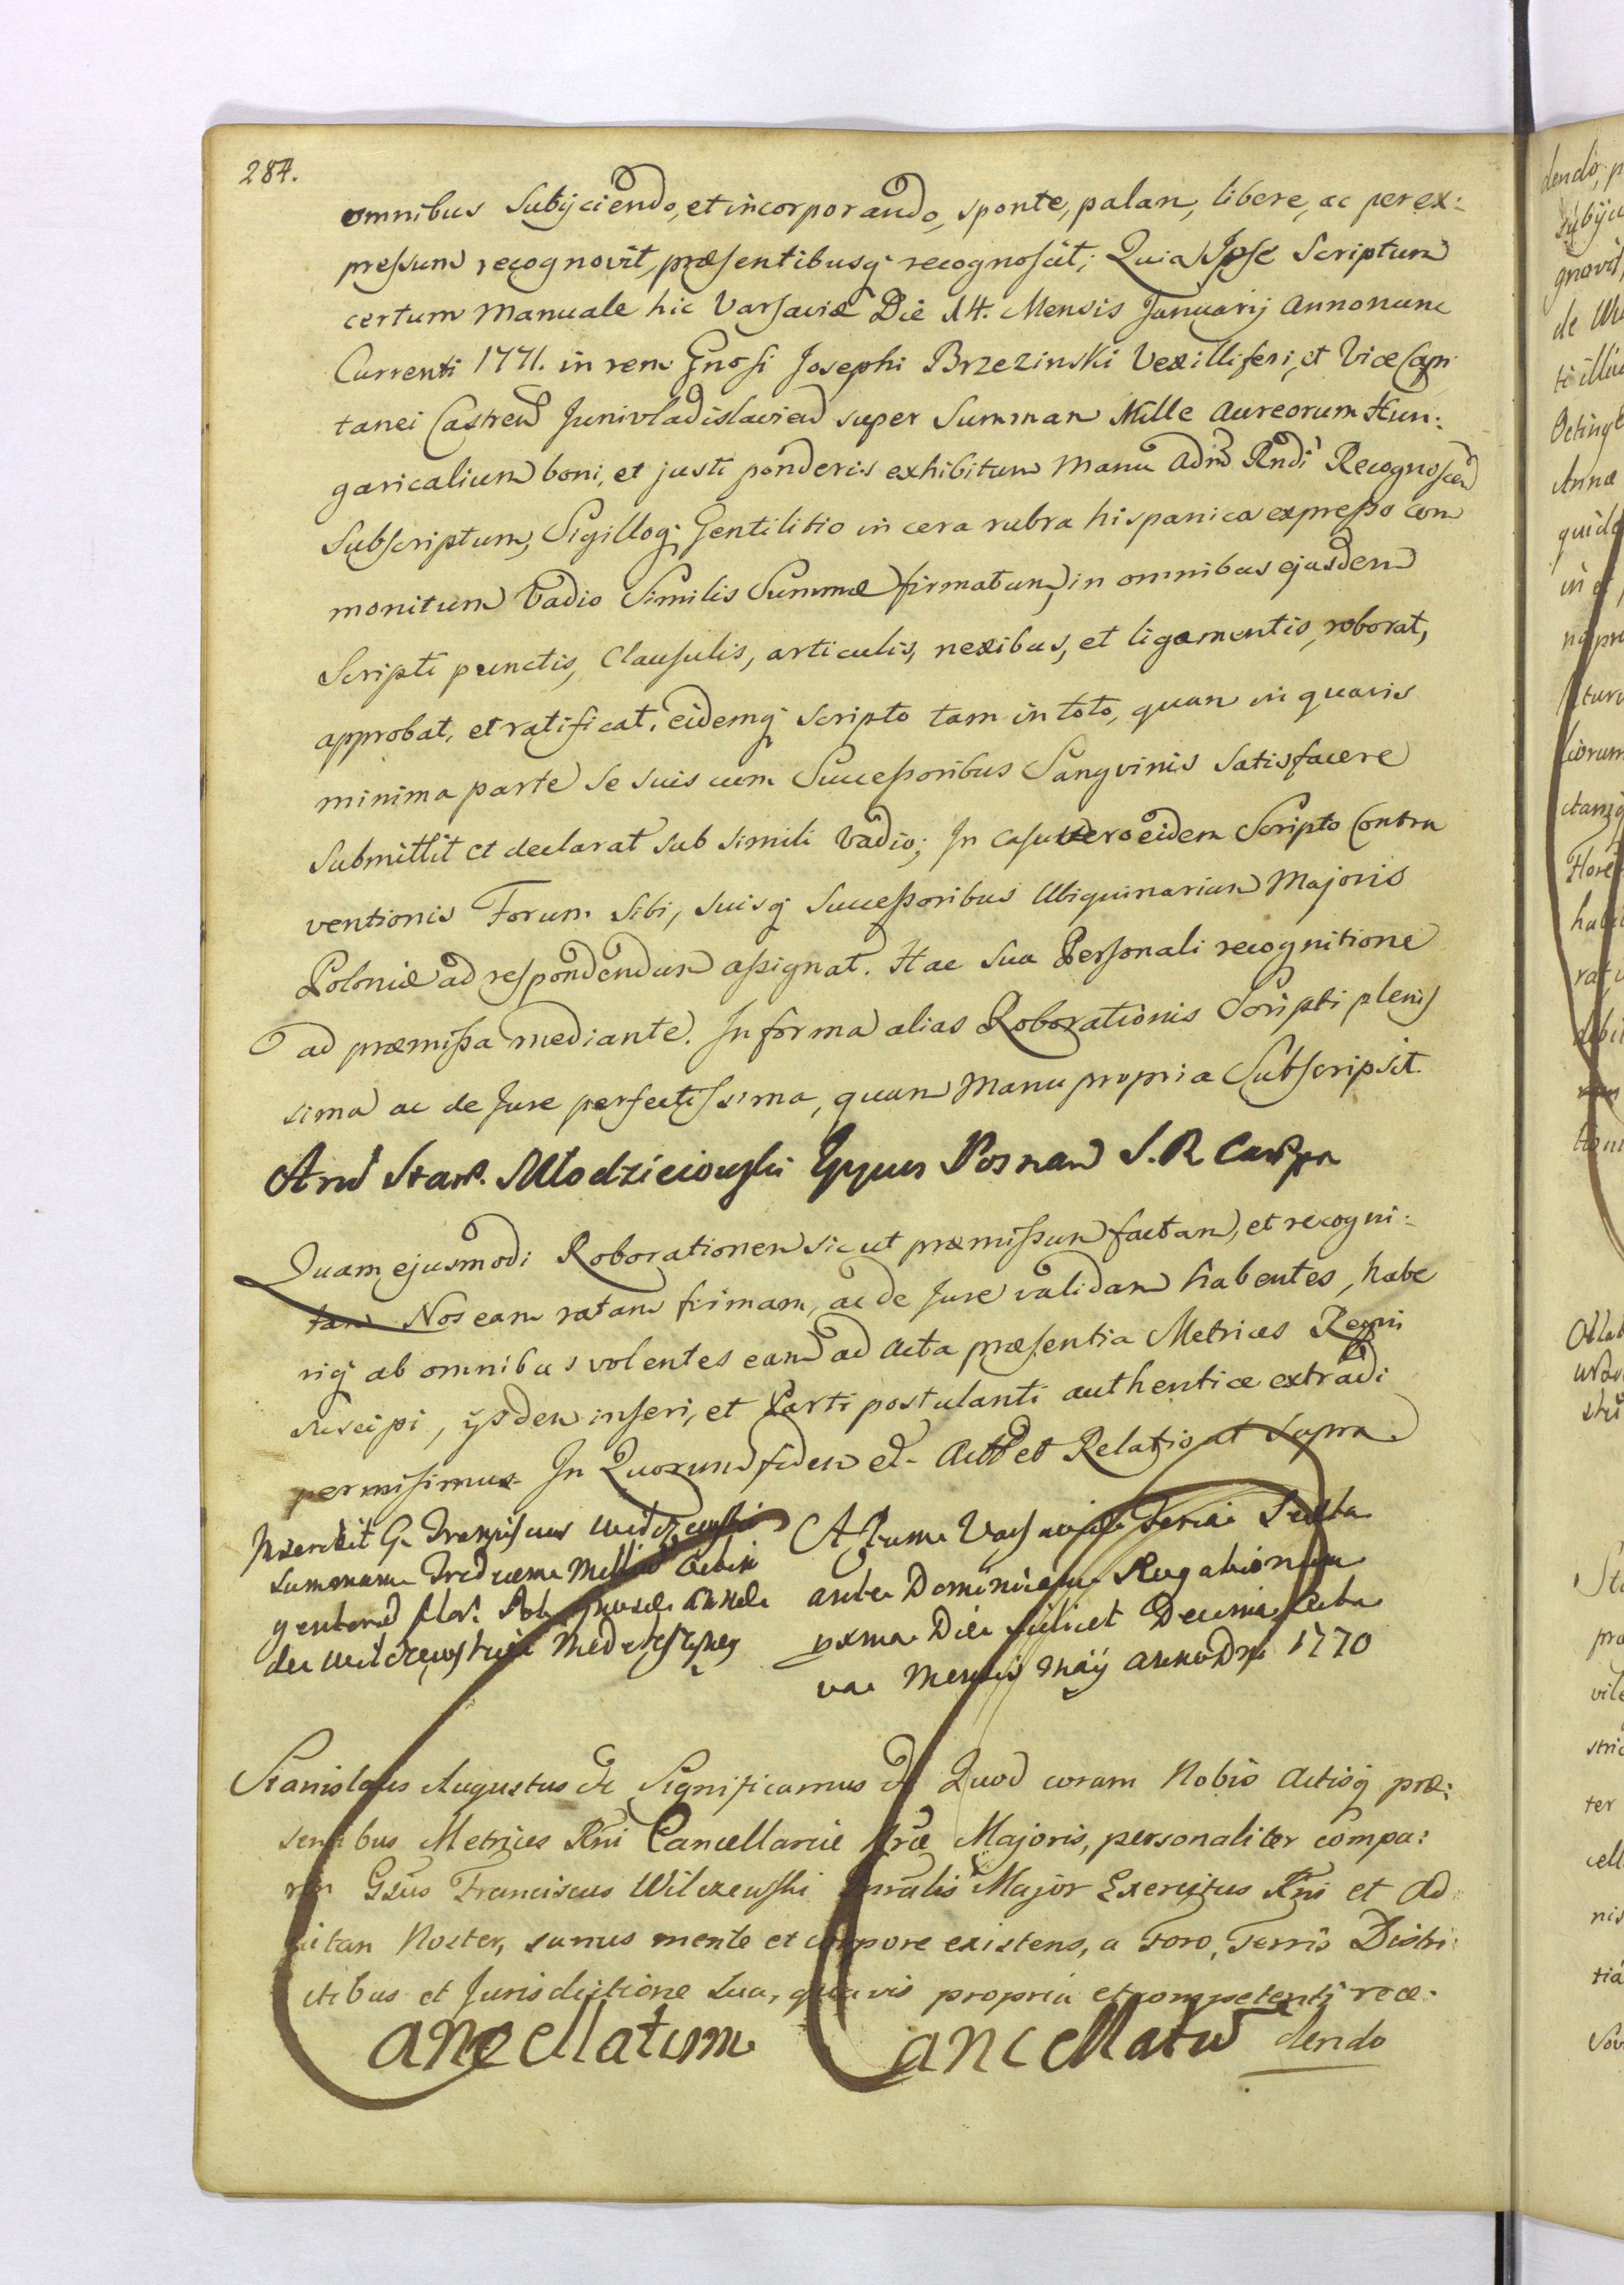 284.
omnibus Subijciendo, et incorporando, sponte, palam, libere, ac per ex:
pressum recognovit, præsentibusq recognoscit; Quia Ipse Scriptum
certum Manuale hic Varsaviæ Die 14. Mensis Januarij Anno nunc
Currenti 1771. in rem Gnosi Josephi Brzezinski Vexilliferi, et Vice Capi
tanei Castren Junivladislavien super Summam Mille Aureorum Hun:
garicalium boni, et justi ponderis exhibitum Manu Adm Rndi Recognoscen
Subscriptum, Sigilloq Gentilitio in cera rubra hispanica expresso com
monitum Vadio Similis Summæ firmatum, in omnibus ejusdem
Scripti punctis, Clausulis, articulis, nexibus, et ligamentis, roborat,
approbat, et ratificat, eidemq Scripto tam in toto, quam in quavis
minima parte se suis cum Successoribus Sangvinis Satisfacere
Submittit et declarat sub simili Vadio; In casu vero eidem Scripto Contra
ventionis Forum Sibi, suisq Successoribus Ubiquinarium Majoris
Poloniæ ad respondendum assignat. Hac Sua Personali recognitione
ad præmissa mediante. In forma alias Roborationis Scripti plenis
sima ac de Jure perfectissima, quam Manu propria Subscripsit.
And Stan. Młodzieiowski Eppus Posnan S. R.
Quam ejusmodi Roborationem sicut præmissum factam, et recogni:
tam Nos eam ratam firmam, ac de Jure validam habentes, habe
riq ab omnibus volentes eand ad Acta præsentia Metrices Regni
suscipi, ijsdem inseri, et Parti postulanti authentice extradi
permisimus. In Quorum fidem et. Act et Relatio ut Supra.
Inscribit G. Franciscus Wilczewski
Summam Tredecem Mille Octin
gentorum flor. Pol. Annæ
de Wilczewskie
Actum Varsaviæ Feria Sexta
ante Dominicam Rogationum
pxma Die scilicet Decima octa
va Mensis Maij Anno Dni 1770
Stanislaus Augustus etc Significamus etc Quod coram Nobis Actisq præ:
sentibus Metrices Rni Cancellariæ Nræ Majoris, personaliter compa:
rens Gsus Franciscus Wilczewski Gnralis Major Exercitus Rni et Ad
jutan Noster, sanus mente et corpore existens, a Foro, Terris Distri
ctibus et Jurisdictione Sua, quavis propria et competenti rece:
dendo
Cancellatum Cancellatu